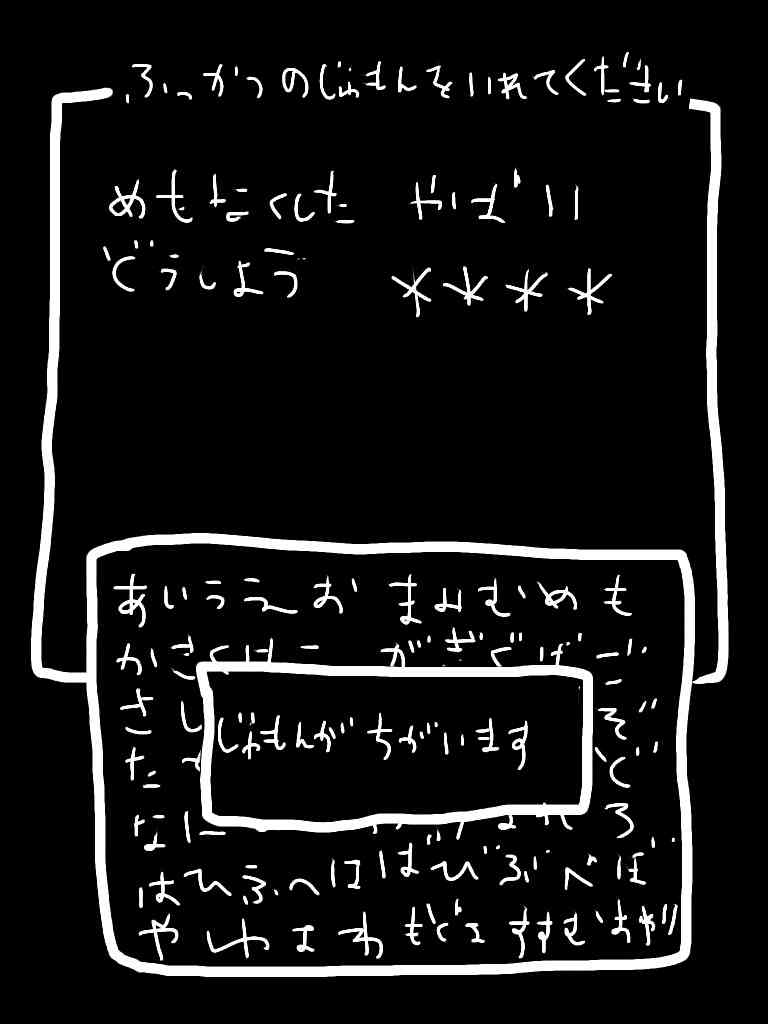 ふっかつのじゅもんをいれてください
めもなくした やばい
どうしよう ****
あいうえお まみむめも
かきくけこ がぎぐげご
さし ぞ
た ど
じゅもんがちがいます
はひふへほ ばびぶべぼ
や ゆ よ わ もどる すすむ おわり